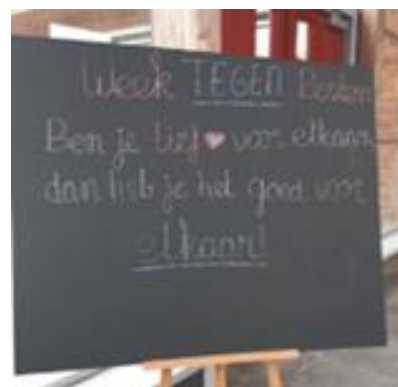 Week TEGEN Pesten
Ben je lief voor elkaar,
dan heb je het goed voor
elkaar!